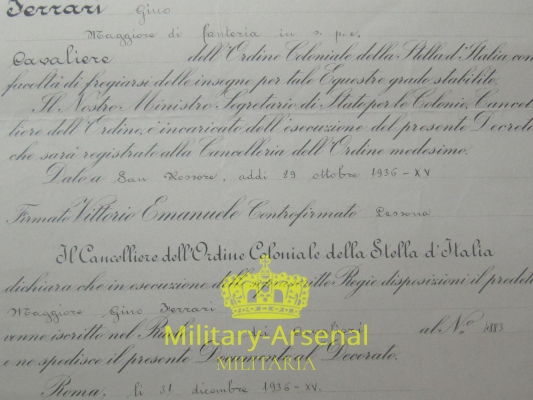 Ferrari Gino
Maggiore di fanteria in s.p.e.
Cavaliere dell'Ordine Coloniale della Stella d'Italia con
facoltà di fregiarsi delle insegne per tale Equestre grado stabilite.
Il Nostro Ministro Segretario di Stato per le Colonie, Cancel-
liere dell'Ordine, è incaricato dell'esecuzione del presente Decreto
che sarà registrato alla Cancelleria dell'Ordine medesimo.
Dato a San Rossore, addì 29 ottobre 1936-XV
Firmato Vittorio Emanuele Controfirmato Lessona
Il Cancelliere dell'Ordine Coloniale della Stella d'Italia
dichiara che in esecuzione delle Regie disposizioni il predetto
Maggiore Gino Ferrari
venne iscritto nel dei al N.º
Military-Arsenal
e ne spedisce il presente Documento al Decorato.
MILITARIA
Roma, lì 31 dicembre 1936-XV.